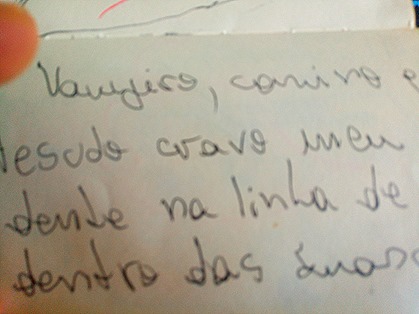 Vampiro, canino e
tesudo cravo meu
dente na linha de
dentro das suas